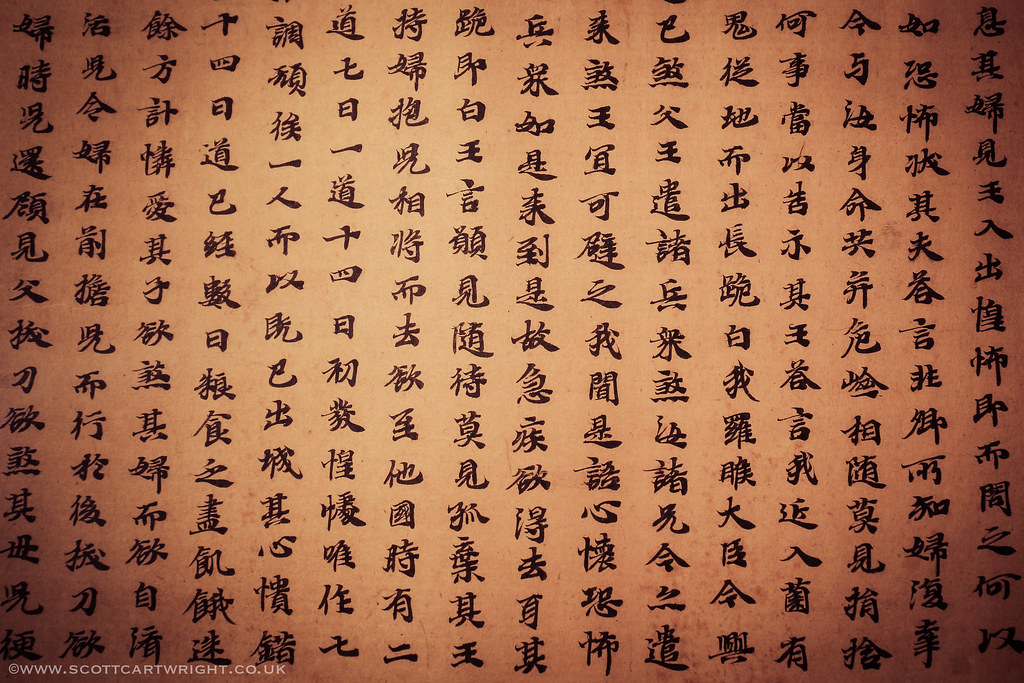 息其婦見王入出惶怖即而問之何以
如恐怖狀其夫荅言非卿所知婦復牽
今与汝身命共并危嶮相随莫見捐捨
何事當以告示其王荅言我近入薗有
鬼從地而出長跪白我羅睺大臣今興
已煞父王遣諸兵衆煞汝諸兄今亦遣
来煞王宜可避之我聞是語心懷恐怖
兵衆如是来到是故急疾欲得去耳其
跪即白王言願見随待莫見孤棄其王
持婦抱兒相将而去欲至他國時有二
道七日一道十四日初發惶懅唯作七
調俟一人而以既已出城其心憒錯
十四日道已經數日粮食乏盡飢餓迷
餘方計憐愛其子欲煞其婦而欲自濟
活兒令婦在前擔兒而行於後拔刀欲
婦時兒還顧見父拔刀欲煞其母兒
©WWW.SCOTTCARTWRIGHT.CO.UK